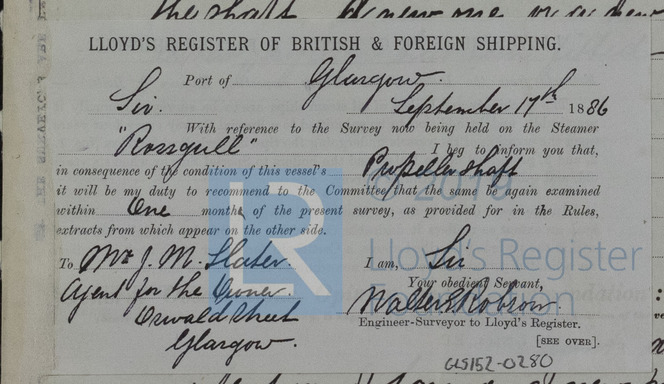 the shaft a new one
LLOYD'S REGISTER OF BRITISH & FOREIGN SHIPPING.
Port of Glasgow.
Sir. September 17th 1886
With reference to the Survey now being held on the Steamer
"Rossgull" I beg to inform you that,
in consequence of the condition of this vessel's Propeller shaft
it will be my duty to recommend to the Committee that the same be again examined
within One months of the present survey, as provided for in the Rules,
extracts from which appear on the other side.
To Mr J. M. Slater. I am, Sir
Agent for the Owner. Your obedient Servant,
Oswald Street Walter Robson
Glasgow. Engineer-Surveyor to Lloyd's Register.
[SEE OVER].
GLS152-0280
LR
Lloyd's Register
Foundation